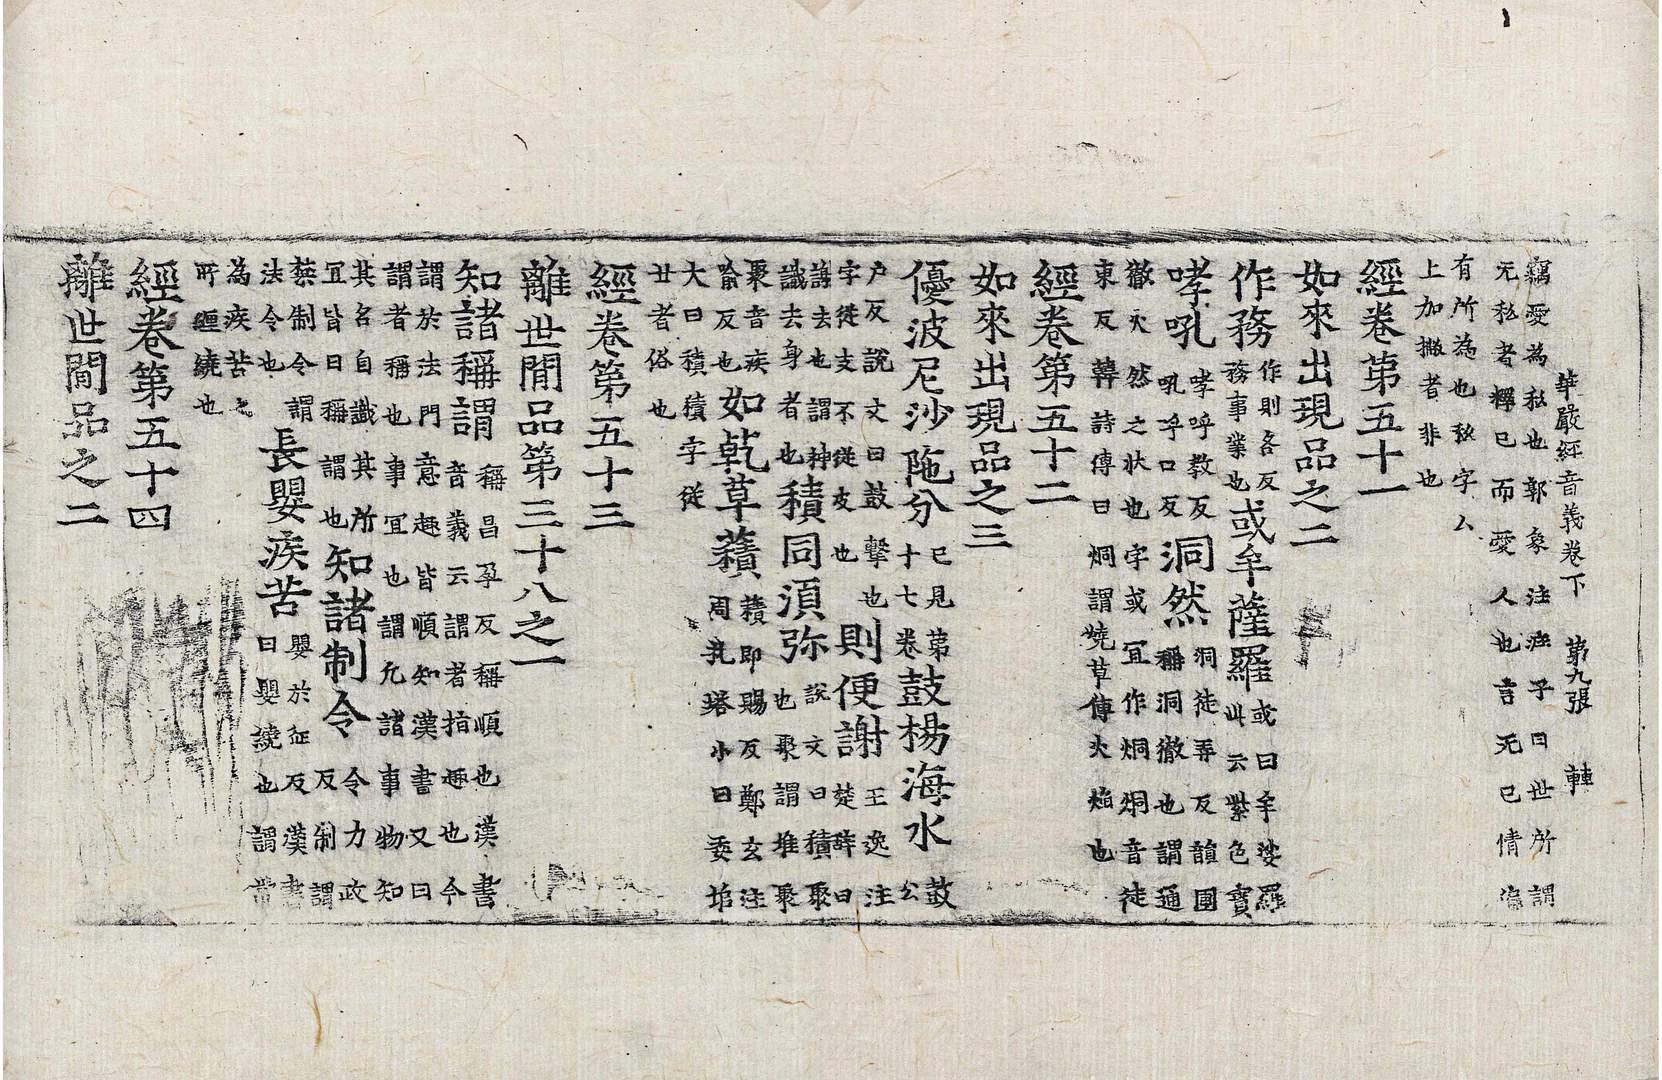 華嚴經音義卷下 第九張 𨋀
竊愛為私也郭象注莊子曰世所謂
无私者釋已而愛人也言无已情
有所為也私字厶
上加撇者非也
經卷第五十一
如來出現品之二
作務 作則各反務事業也 或牟薩羅 或曰牟娑羅此云紫色寶
哮吼 哮呼教反吼呼口反 洞然 洞徒弄反韻圃稱洞徹也謂通
徹火然之狀也字或宜作烔烔音徒
東反韓詩傳曰烔謂燒草傳火焰也
經卷第五十二
如來出現品之三
優波尼沙陁分 已見第十七卷 鼓楊海水 鼓公
戶反說文曰鼓擊也字從支不從皮也 則便謝 王逸注楚辭曰
謝去也謂神識去身者也 積同須弥 說文曰積聚也聚謂堆聚
聚音疾喻反也 如乾草䕆 䕆即賜反鄭玄注周礼塔小曰委
大曰積積字從
丑者俗也
經卷第五十三
離世間品第三十八之一
知諸稱謂 稱昌孕反稱順也漢書音義云謂者指趣也今
謂於法門意趣皆順知漢書又曰
謂者稱也事冝也謂允諸事物知
其名自識其所冝皆曰稱謂也 知諸制令 令力政反制謂
禁制令謂法令也 長嬰疾苦 嬰於征反漢書曰嬰繞也謂常
為疾苦之
所纏繞也
經卷第五十四
離世間品之二